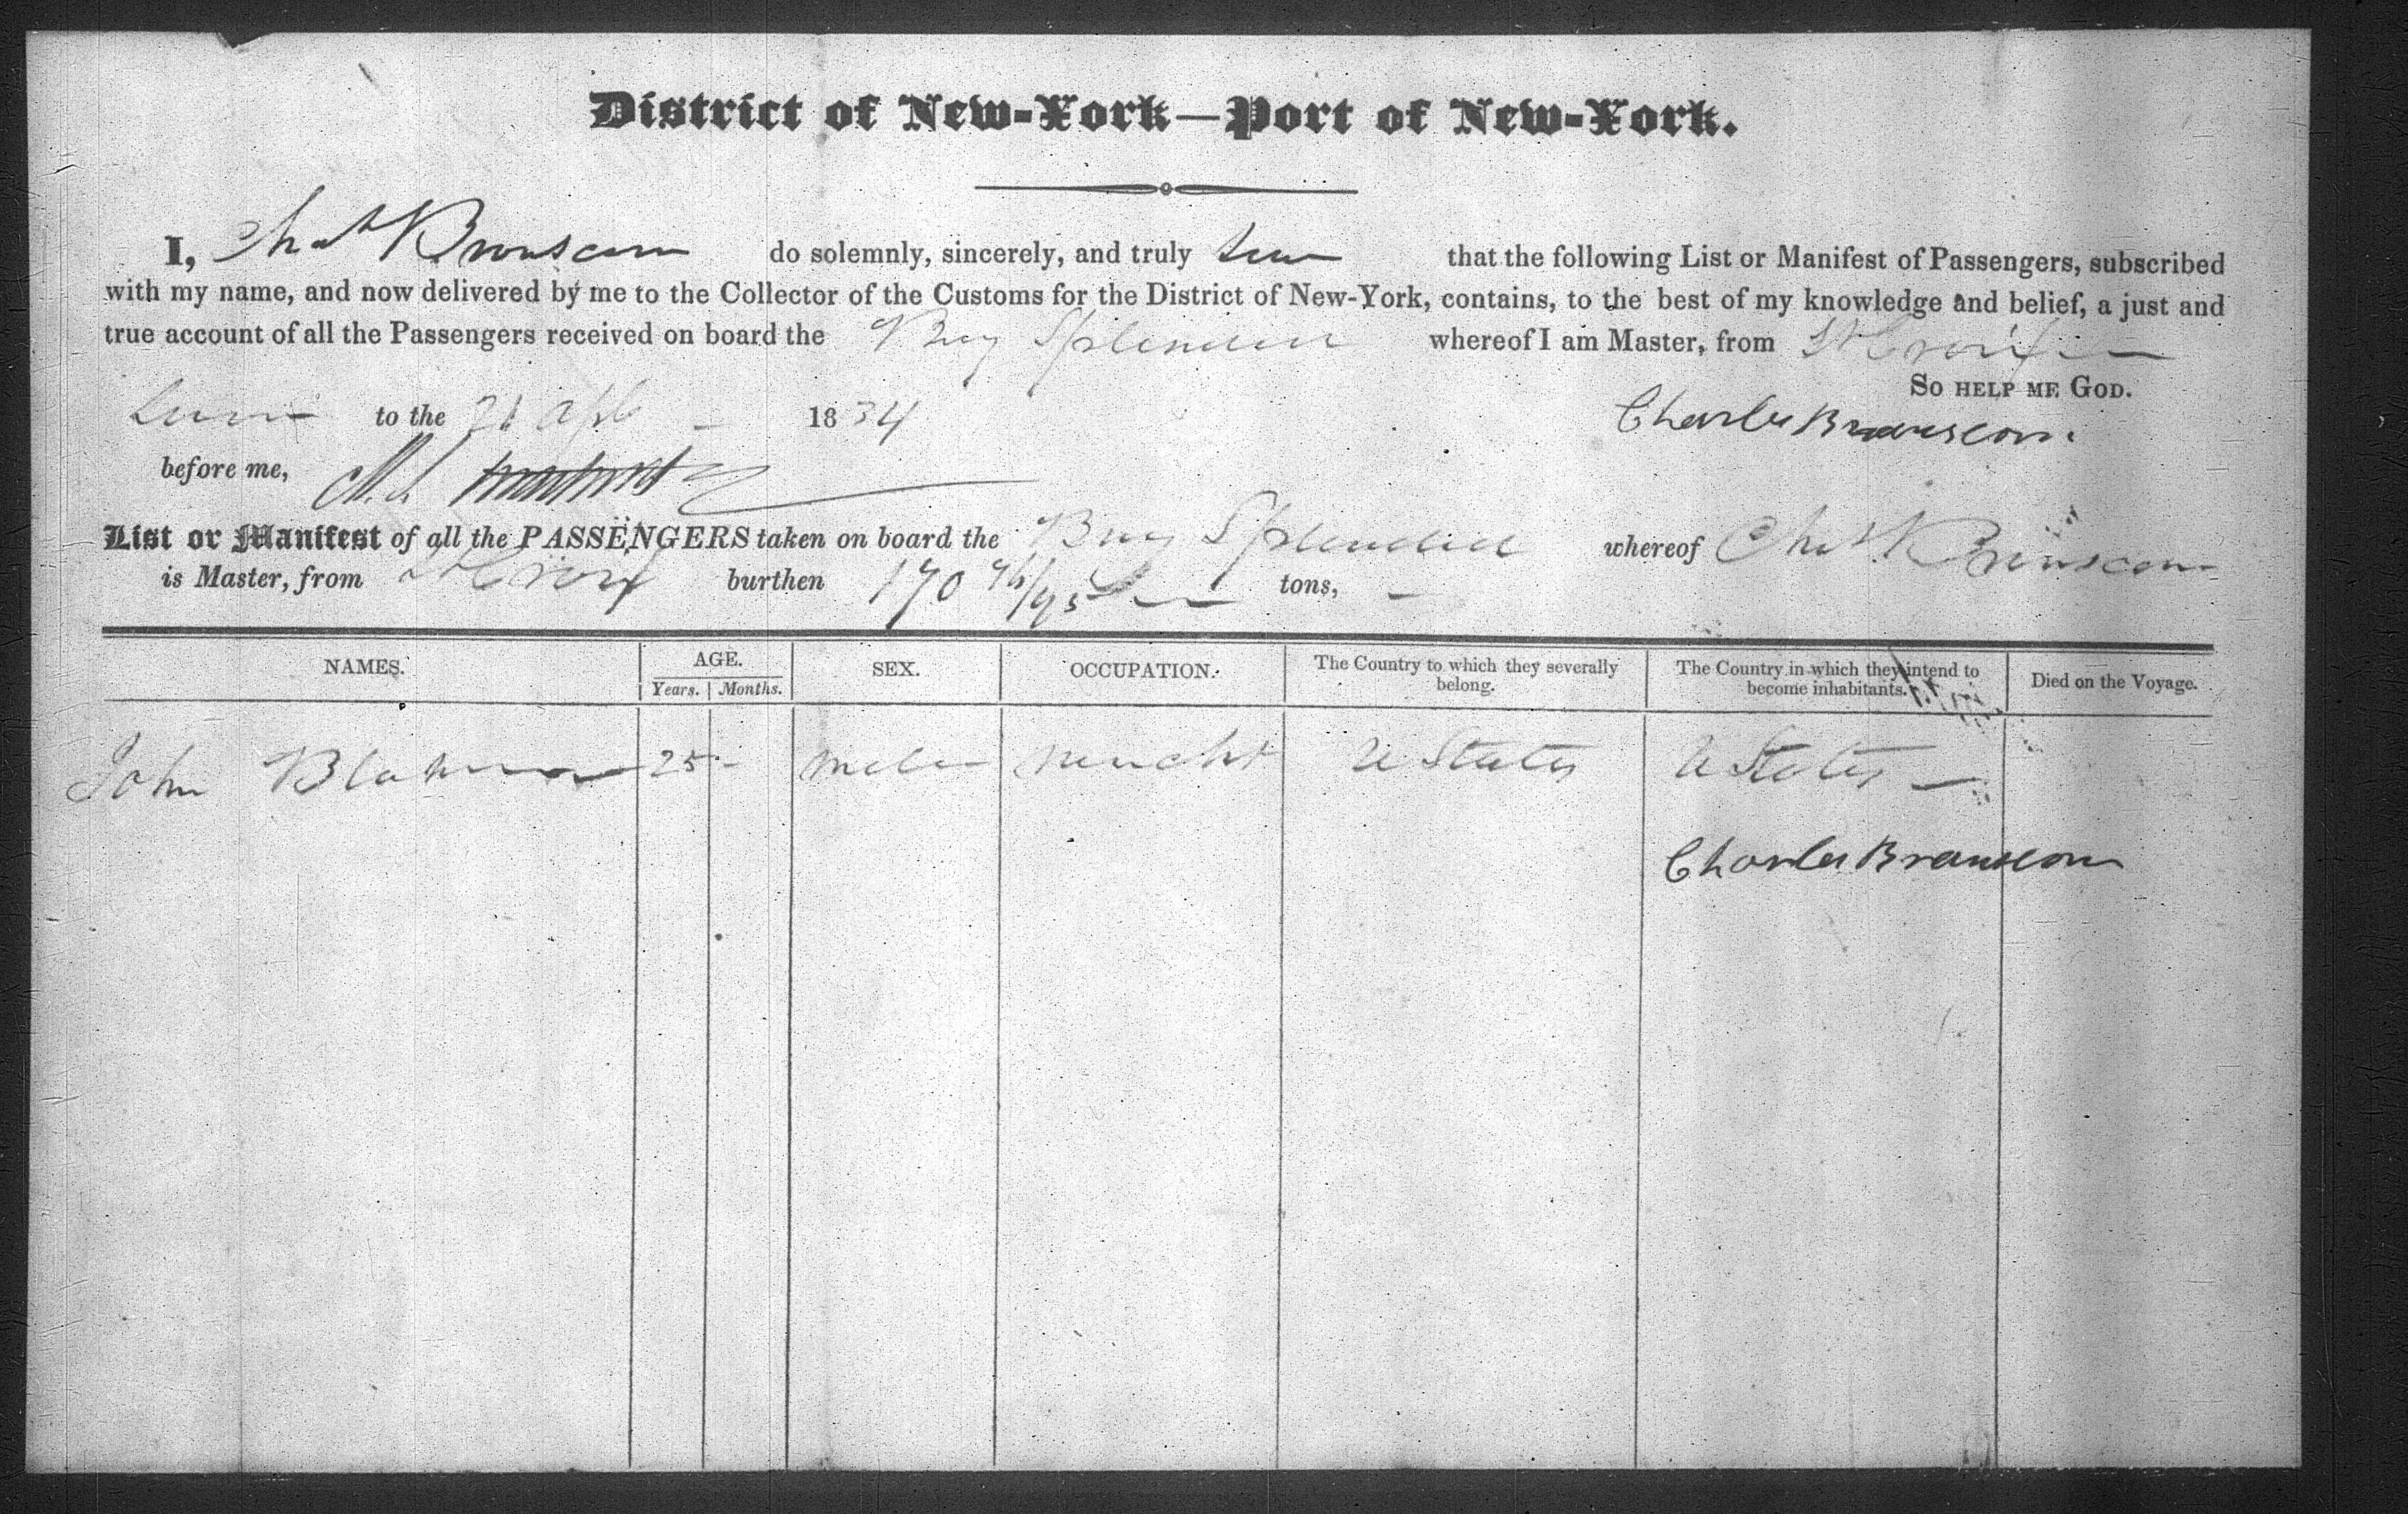 District of New-York—Port of New-York.
I, Chas Branscom do solemnly, sincerely, and truly that the following List or Manifest of Passengers, subscribed
with my name, and now delivered by me to the Collector of the Customs for the District of New-York, contains, to the best of my knowledge and belief, a just and
true account of all the Passengers received on board the Brig Splendid whereof I am Master, from St Croix
So help me God.
to the 21 Apl 1834
Charles Branscom.
before me,
List or Manifest of all the PASSENGERS taken on board the Brig Splendid whereof Chas Branscom
is Master, from St Croix burthen 170 76/95 tons,
NAMES. AGE. SEX. OCCUPATION. The Country to which they severally belong. The Country in which they intend to become inhabitants. Died on the Voyage.
Years. Months.
John 25 - male mercht U States U States
Charles Branscom